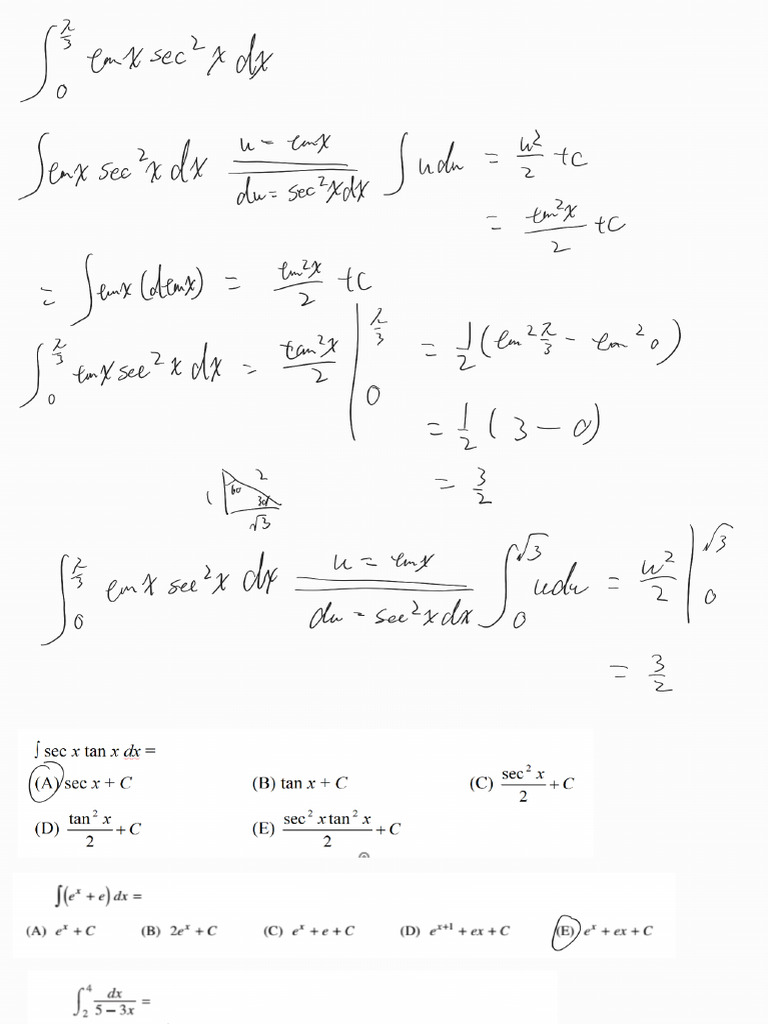 ∫₀^(π/3) tan x sec² x dx
∫ tan x sec² x dx (u = tan x / du = sec² x dx) ∫ u du = u²/2 + C
= tan² x/2 + C
= ∫ tan x (d tan x) = tan² x/2 + C
∫₀^(π/3) tan x sec² x dx = tan² x/2 |₀^(π/3) = 1/2 (tan² π/3 - tan² 0)
= 1/2 (3 - 0)
= 3/2
1 60 2 30 √3
∫₀^(π/3) tan x sec² x dx (u = tan x / du = sec² x dx) ∫₀^(√3) u du = u²/2 |₀^(√3)
= 3/2
∫ sec x tan x dx =
(A) sec x + C (B) tan x + C (C) sec² x/2 + C
(D) tan² x/2 + C (E) sec² x tan² x/2 + C
∫(eˣ + e) dx =
(A) eˣ + C (B) 2eˣ + C (C) eˣ + e + C (D) eˣ⁺¹ + ex + C (E) eˣ + ex + C
∫₂⁴ dx/(5 − 3x) =